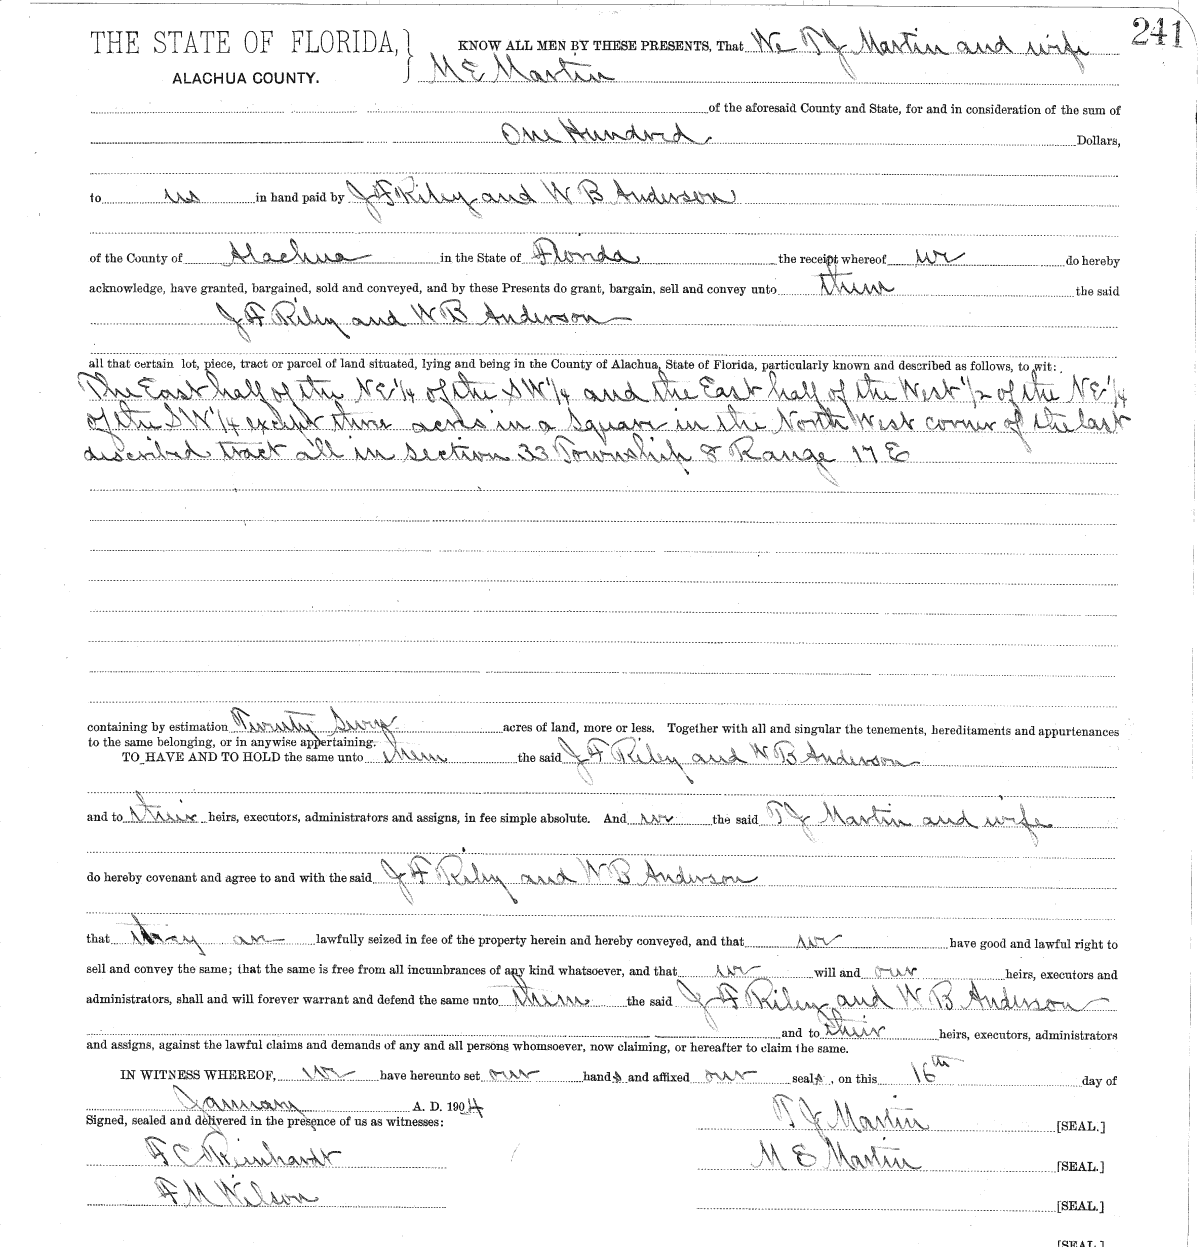 241
THE STATE OF FLORIDA, } KNOW ALL MEN BY THESE PRESENTS, That We T J Martin and wife
ALACHUA COUNTY. M E Martin
of the aforesaid County and State, for and in consideration of the sum of
One Hundred Dollars,
to us in hand paid by J F Riley and W B Anderson
of the County of Alachua in the State of Florida the receipt whereof we do hereby
acknowledge, have granted, bargained, sold and conveyed, and by these Presents do grant, bargain, sell and convey unto them the said
J F Riley and W B Anderson
all that certain lot, piece, tract or parcel of land situated, lying and being in the County of Alachua, State of Florida, particularly known and described as follows, to wit:
The East half of the NE 1/4 of the SW 1/4 and the East half of the West 1/2 of the NE 1/4
of the SW 1/4 except three acres in a Square in the North West corner of the last
described tract all in section 33 Township 8 Range 17 E
containing by estimation Twenty acres of land, more or less. Together with all and singular the tenements, hereditaments and appurtenances
to the same belonging, or in anywise appertaining.
TO HAVE AND TO HOLD the same unto them the said J F Riley and W B Anderson
and to their heirs, executors, administrators and assigns, in fee simple absolute. And we the said T J Martin and wife
do hereby covenant and agree to and with the said J F Riley and W B Anderson
that they are lawfully seized in fee of the property herein and hereby conveyed, and that we have good and lawful right to
sell and convey the same; that the same is free from all incumbrances of any kind whatsoever, and that we will and our heirs, executors and
administrators, shall and will forever warrant and defend the same unto them the said J F Riley and W B Anderson
and to their heirs, executors, administrators
and assigns, against the lawful claims and demands of any and all persons whomsoever, now claiming, or hereafter to claim the same.
IN WITNESS WHEREOF, we have hereunto set our hands and affixed our seals, on this 16th day of
January A. D. 1904
Signed, sealed and delivered in the presence of us as witnesses: T J Martin [SEAL.]
F C Reinhardt M E Martin [SEAL.]
F M Wilson [SEAL.]
[SEAL.]